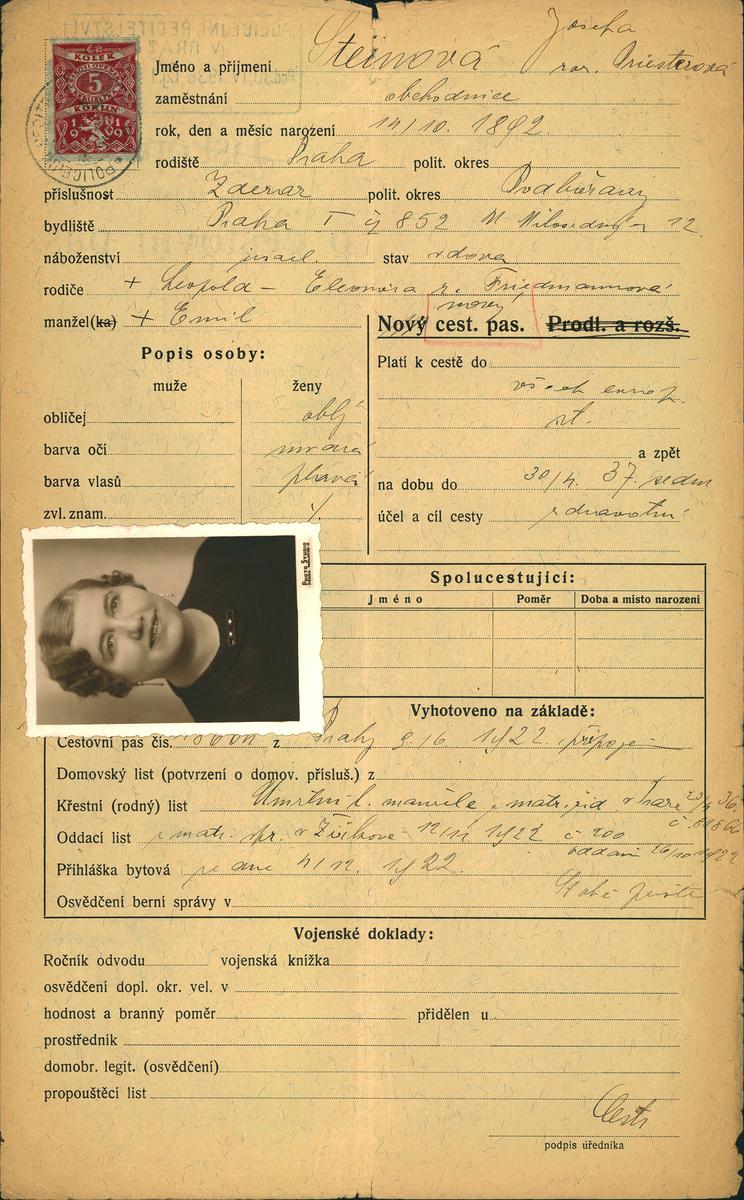 KOLEK
5
KORUN
1919
Josefa
Jméno a příjmení Steinová roz. Priesterová
zaměstnání obchodnice
rok, den a měsíc narození 14/10. 1892.
rodiště Praha polit. okres
příslušnost Zderaz polit. okres Podbořany
bydliště Praha I čj 852 12.
náboženství israel. stav vdova
rodiče + Leopold – Eleonora r. Friedmannová
manžel(ka) + Emil
nový
Nový cest. pas. Prodl. a rozš.
Popis osoby:
muže ženy
obličej oblý
barva očí modrá
barva vlasů plavá
zvl. znam. /
Platí k cestě do
všech europ.
st.
a zpět
na dobu do 30/4. 37.
účel a cíl cesty zdravotní
PHOTO STYBRO
Spolucestující:
Jméno Poměr Doba a místo narození
Vyhotoveno na základě:
Cestovní pas čís. z Prahy 9.16 1922. připoje
Domovský list (potvrzení o domov. přísluš.) z
Křestní (rodný) list Úmrtní l. manžela z matr. žid v Praze 23/4 36.
č. 81866
Oddací list z matr. v Žižkově 12/12 1922 č 200
oddáni 26/10 1922
Přihláška bytová ze dne 4/12. 1922.
Osvědčení berní správy v
Vojenské doklady:
Ročník odvodu vojenská knížka
osvědčení dopl. okr. vel. v
hodnost a branný poměr přidělen u
prostředník
domobr. legit. (osvědčení)
propouštěcí list
podpis úředníka